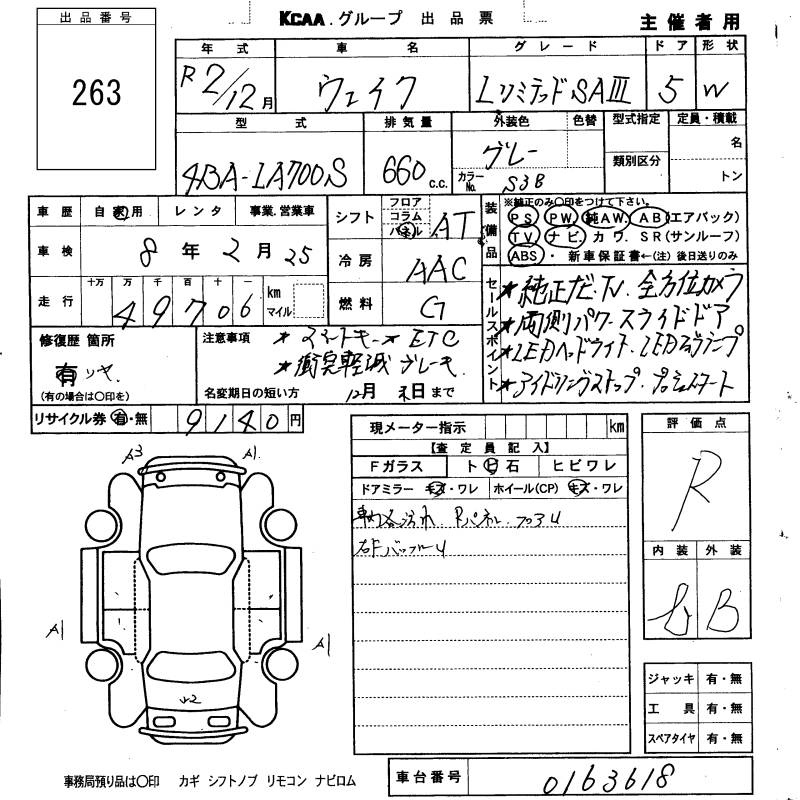 出品番号
263
KCAA.グループ 出品票
主催者用
年式 車名 グレード ドア 形状
R2/12月 ウェイク LリミテッドSAIII 5 W
型式 排気量 外装色 色替 型式指定 定員・積載
4BA-LA700S 660c.c. グレー 類別区分 名
カラーNo. S38 トン
車歴 自家用 レンタ 事業.営業車
車検 8年2月25
走行 十万 万 千 百 十 一
49706 km マイル
シフト フロア コラム パネル AT
冷房 AAC
燃料 G
装備品 ※純正のみ○印をつけて下さい。
PS PW 純AW. AB(エアバック)
TV ナビ. カワ. SR(サンルーフ)
ABS・ 新車保証書←(注) 後日送りのみ
セールスポイント
★純正ナビ.TV. 全方位カメラ
★両側パワースライドドア
★LEDヘッドライト.LEDフォグランプ
★アイドリングストップ.プッシュスタート
修復歴 箇所
有 リヤ.
(有の場合は○印を)
注意事項 ★スマートキー★ETC
★衝突軽減ブレーキ
名変期日の短い方 12月末日まで
リサイクル券 有・無 9140円
現メーター指示 km
【査定員記入】
Fガラス ト ヒ 石 ヒビワレ
ドアミラー キズ・ワレ ホイール(CP) キズ・ワレ
Rパネル フロアU
右FバンパーU
評価点
R
内装 外装
B
A3 A1
A1 A1
ジャッキ 有・無
工具 有・無
スペアタイヤ 有・無
事務局預り品は○印 カギ シフトノブ リモコン ナビロム
車台番号 0163618